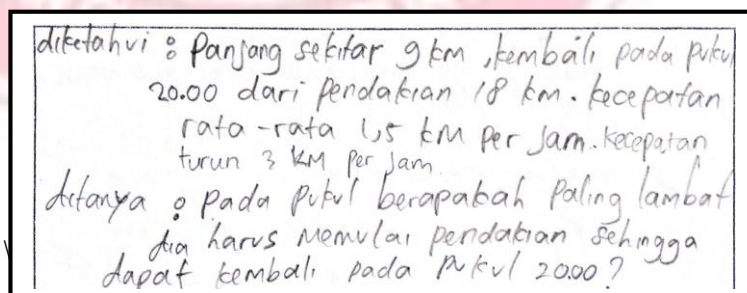 diketahui : Panjang sekitar 9 km, kembali pada pukul
20.00 dari pendakian 18 km. kecepatan
rata-rata 1,5 km per jam. kecepatan
turun 3 KM per jam
ditanya : pada pukul berapakah paling lambat
dia harus memulai pendakian sehingga
dapat kembali pada pukul 20.00?